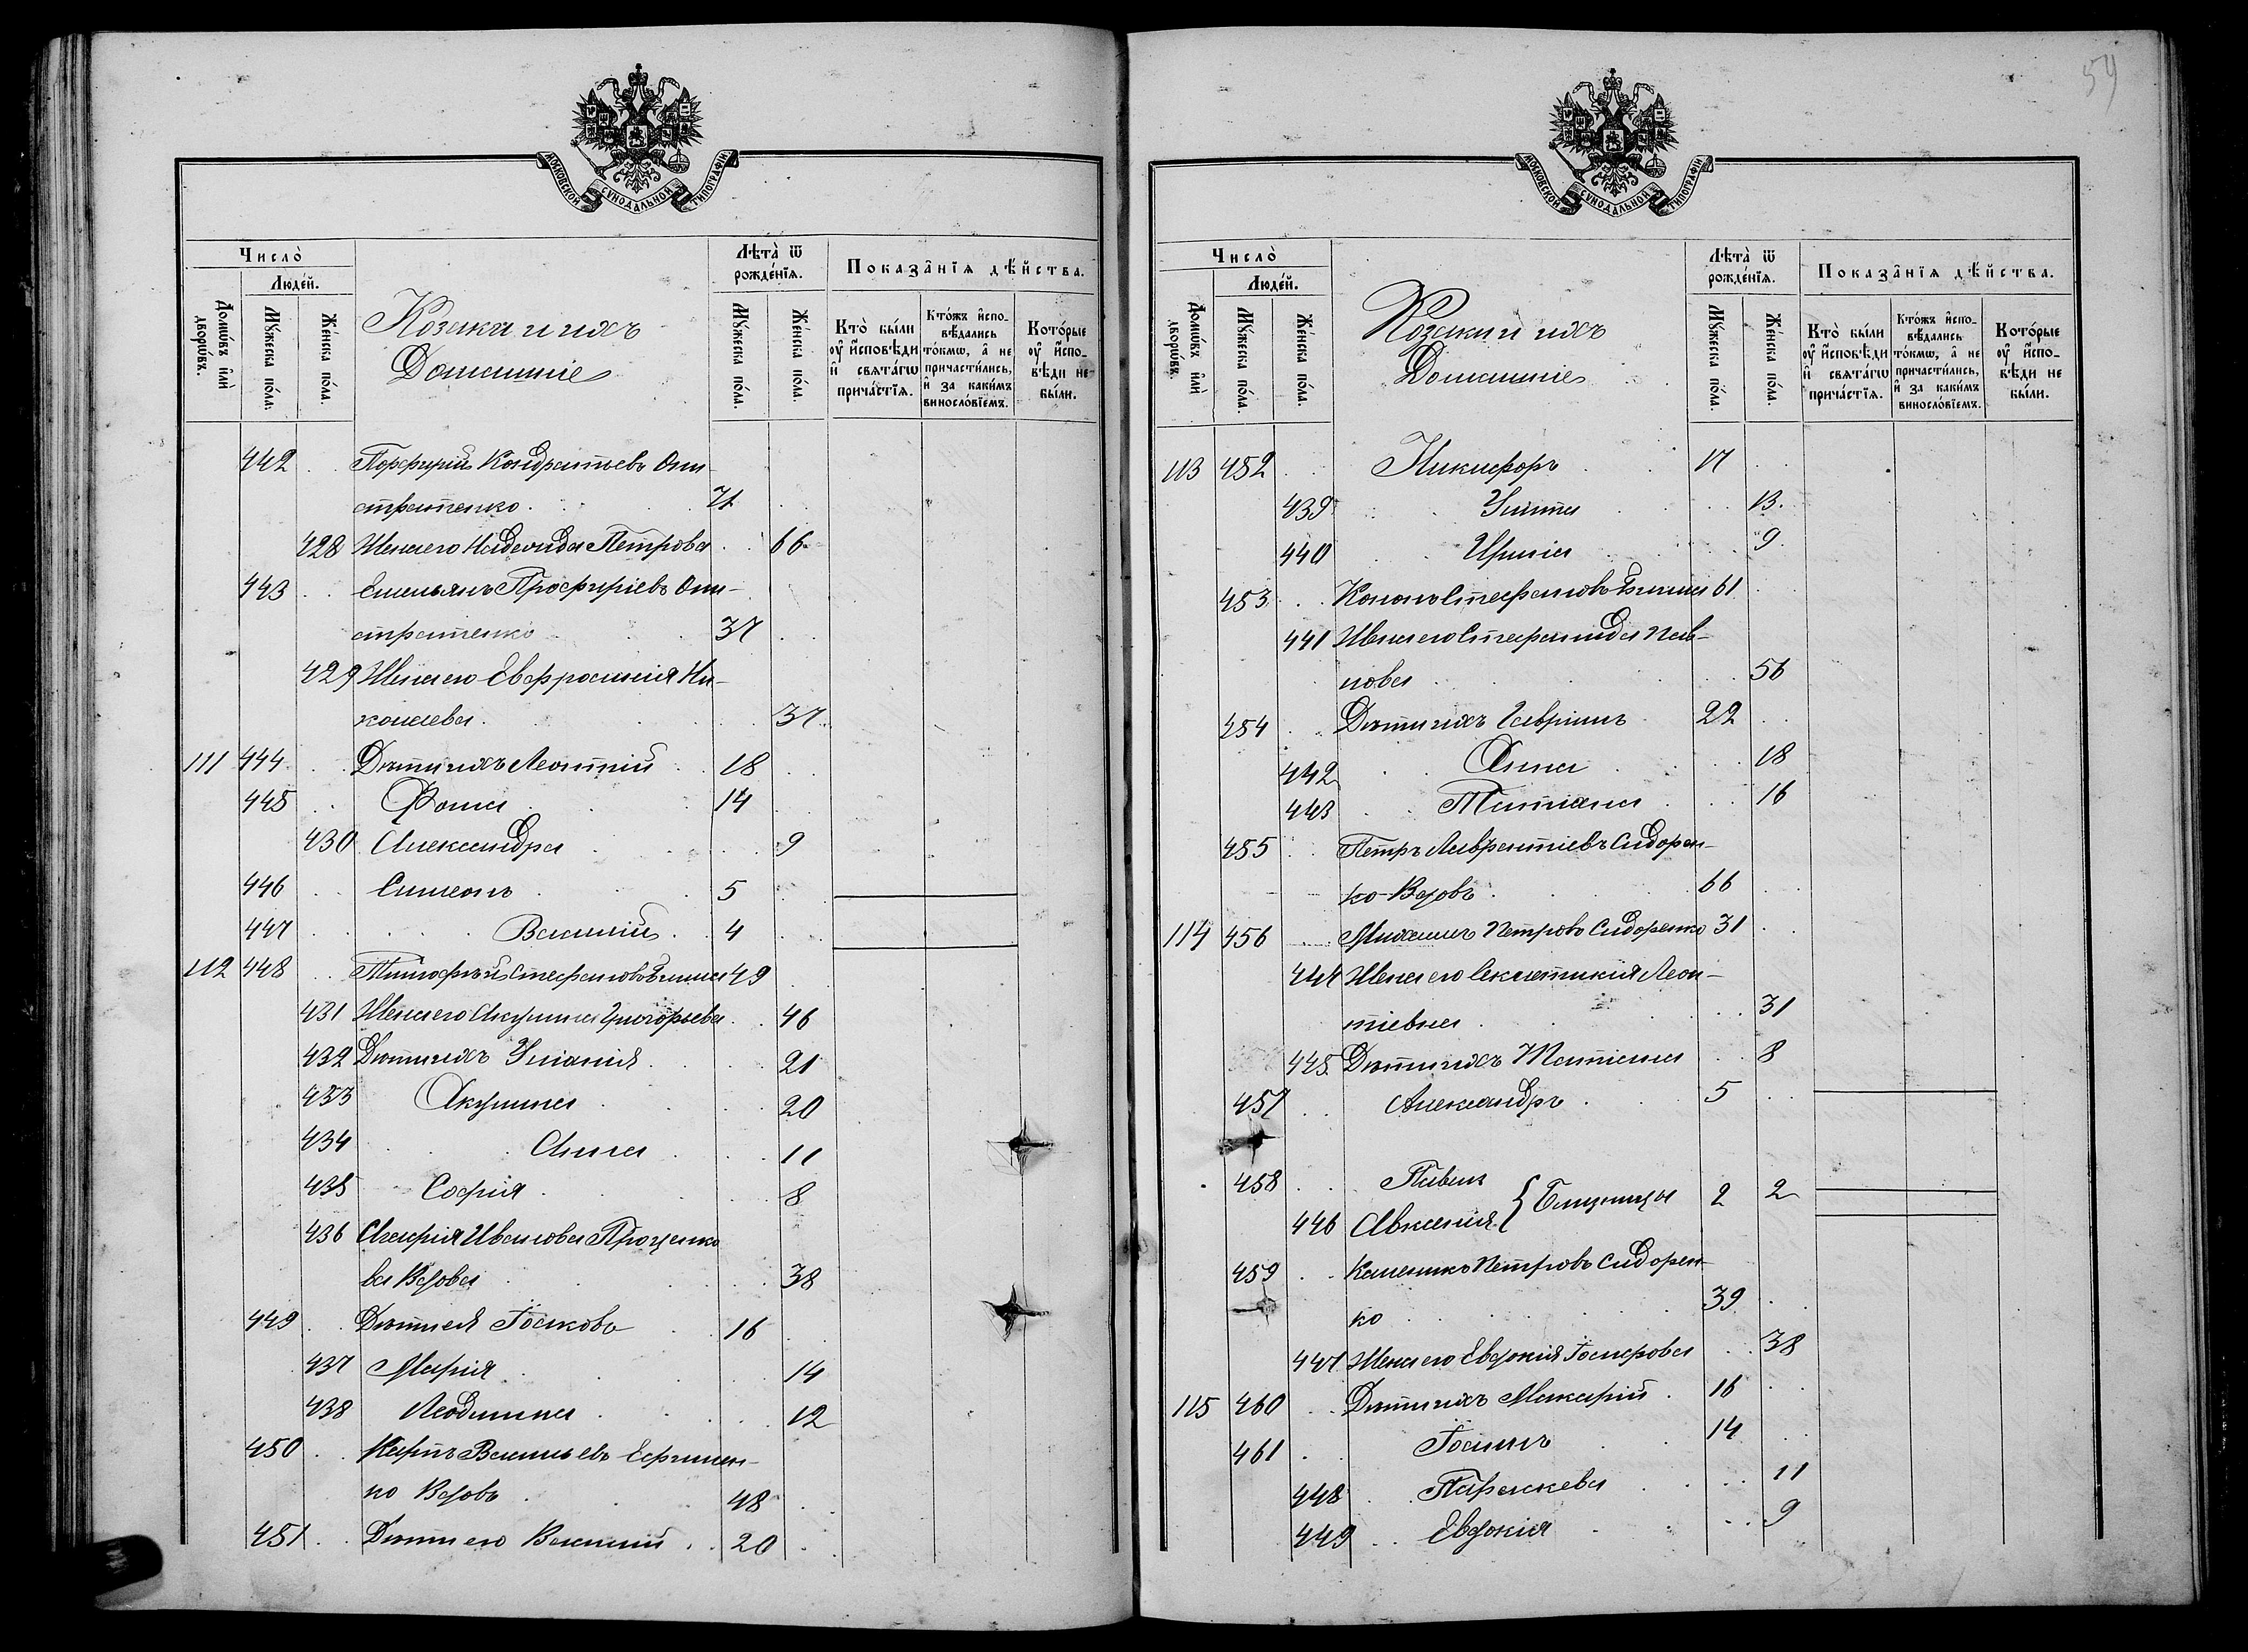 59
МОСКОВСКОЙ СѴНОДАЛЬНОЙ ТИПОГРАФІИ.
Число̀
Люде́й.
Домѡ́въ и҆лѝ дворѡ́въ.
Мꙋ́жеска по́ла.
Же́нска по́ла.
Козаки и ихъ
Домашніе
Лѣта̀ ѿ рожде́нїѧ.
Мꙋ́жеска по́ла.
Же́нска по́ла.
Показа̑нїѧ дѣ́йства.
Кто̀ бы́ли оу҆ и҆́сповѣди и҆ свѧта́гѡ прича́стїѧ.
Кто́жъ и҆спо-вѣ́дались то́кмѡ, а҆ не причасти́лись, и҆ за каки́мъ винословїемъ.
Кото́рые оу҆ и҆́спо-вѣди не бы́ли.
442 Порфирій Кондратьевъ Они-
стратенко 71
428 Жена его Надежда Петрова 66
443 Емельянъ Профиріевъ Они-
стратенко 37
429 Жена его Евфросинія Ни-
колаева 37
111 444 Дѣти ихъ Леонтій 18
445 Фома 14
430 Александра 9
446 Симеонъ 5
447 Василій 4
112 448 Тимофѣй Стефановъ 49
431 Жена его Акулина Григорьева 46
432 Дѣти ихъ Уліанія 21
433 Акулина 20
434 Анна 11
435 Софія 8
436 Агафія Иванова Проценко
ва Вдова 38
449 Дѣти ея Іаковъ 16
437 Марія 14
438 Леодинна 12
450 Карпъ Васильевъ Ефимен-
ко Вдовъ 48
451 Дѣти его Василій 20
МОСКОВСКОЙ СѴНОДАЛЬНОЙ ТИПОГРАФІИ.
Число̀
Люде́й.
Домѡ́въ и҆лѝ дворѡ́въ.
Мꙋ́жеска по́ла.
Же́нска по́ла.
Козаки и ихъ
Домашніе
Лѣта̀ ѿ рожде́нїѧ.
Мꙋ́жеска по́ла.
Же́нска по́ла.
Показа̑нїѧ дѣ́йства.
Кто̀ бы́ли оу҆ и҆́сповѣди и҆ свѧта́гѡ прича́стїѧ.
Кто́жъ и҆спо-вѣ́дались то́кмѡ, а҆ не причасти́лись, и҆ за каки́мъ винословїемъ.
Кото́рые оу҆ и҆́спо-вѣди не бы́ли.
113 452 Никифоръ 17
439 Улита 13
440 Ирина 9
453 Кононъ Стефановъ 61
441 Жена его Стефанида Пав-
лова 56
454 Дѣти ихъ Гавріилъ 22
442 Анна 18
443 Татіана 16
455 Петръ Лаврентіевъ Сидорен-
ко Вдовъ 66
114 456 Михаилъ Петровъ Сидоренко 31
444 Жена его Секлетикія Леон-
тіевна 31
445 Дѣти ихъ Татіана 8
457 Александръ 5
458 Павелъ
446 Авксенія } Близнецы 2 2
459 Каленикъ Петровъ Сидорен-
ко 39
447 Жена его Евдокія Іосифова 38
115 460 Дѣти ихъ Макарій 16
461 Іоаннъ 14
448 Параскева 11
449 Евдокія 9